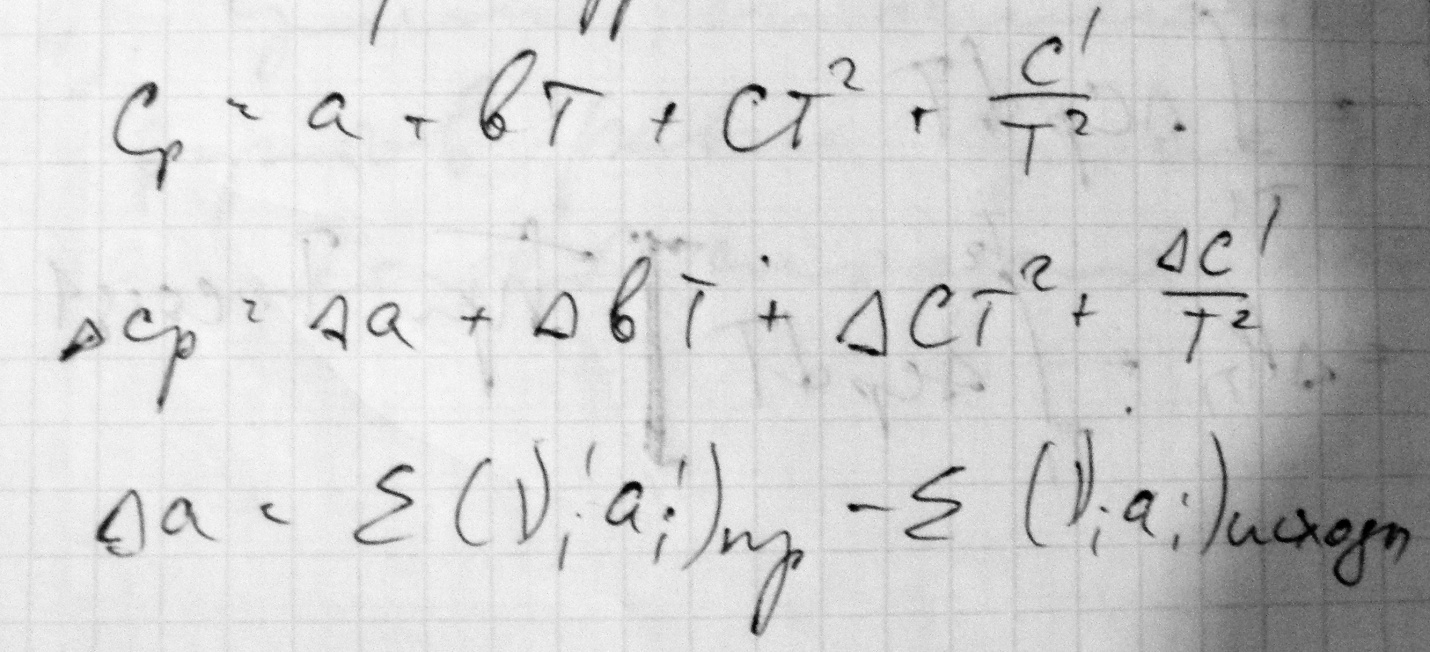 Cp = a + вT + CT² + C'/T².
ΔCp = Δa + ΔвT + ΔCT² + ΔC'/T²
Δa = Σ (νᵢ'aᵢ')пр - Σ (νᵢaᵢ)исходн